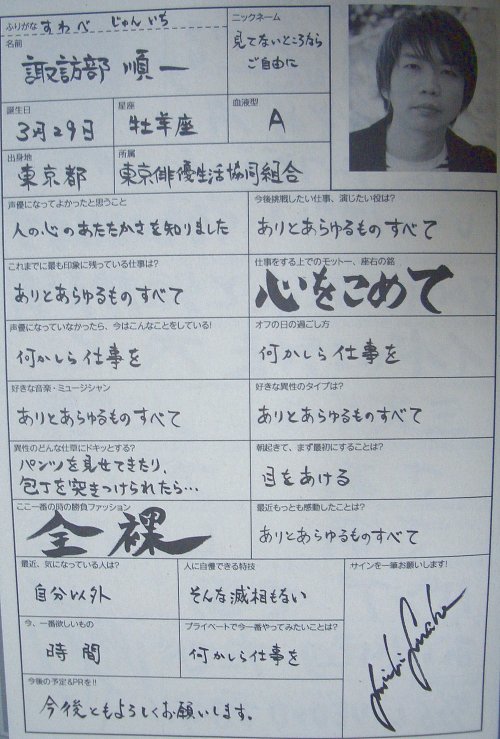 ふりがな すわべ じゅんいち
名前
諏訪部 順一
ニックネーム
見てないところなら
ご自由に
誕生日
3月29日
星座
牡羊座
血液型
A
出身地
東京都
所属
東京俳優生活協同組合
声優になってよかったと思うこと
人の心のあたたかさを知りました
今後挑戦したい仕事、演じたい役は?
ありとあらゆるものすべて
これまでに最も印象に残っている仕事は?
ありとあらゆるものすべて
仕事をする上でのモットー、座右の銘
心をこめて
声優になっていなかったら、今はこんなことをしている!
何かしら仕事を
オフの日の過ごし方
何かしら仕事を
好きな音楽・ミュージシャン
ありとあらゆるものすべて
好きな異性のタイプは?
ありとあらゆるものすべて
異性のどんな仕草にドキッとする?
パンツを見せてきたり、
包丁を突きつけられたら…
朝起きて、まず最初にすることは?
目をあける
ここ一番の時の勝負ファッション
全裸
最近もっとも感動したことは?
ありとあらゆるものすべて
最近、気になっている人は?
自分以外
人に自慢できる特技
そんな滅相もない
サインを一筆お願いします!
今、一番欲しいもの
時間
プライベートで今一番やってみたいことは?
何かしら仕事を
今後の予定&PRを!!
今後ともよろしくお願いします。